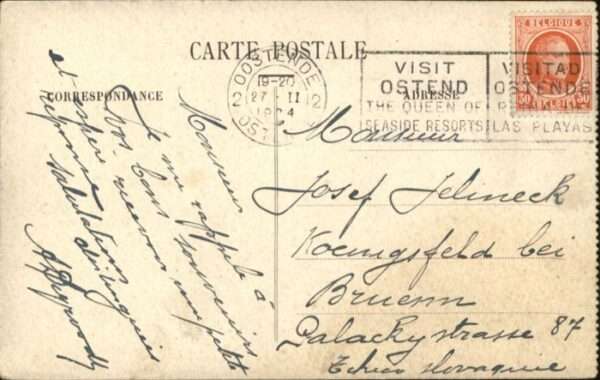 CARTE POSTALE
CORRESPONDANCE
ADRESSE
BELGIQUE
OOSTENDE
19-20
2 27 - II 2
OST
VISIT
OSTEND
THE QUEEN OF
SEASIDE RESORTS
VISITAD
OSTENDE
LAS PLAYAS
Monsieur
Je me rappelle à
vos bons souvenirs
et espère recevoir une petite
réponse
salutations distinguées
Monsieur
Josef Jelineck
Koenigsfeld bei
Bruenn
Palackystrasse 87